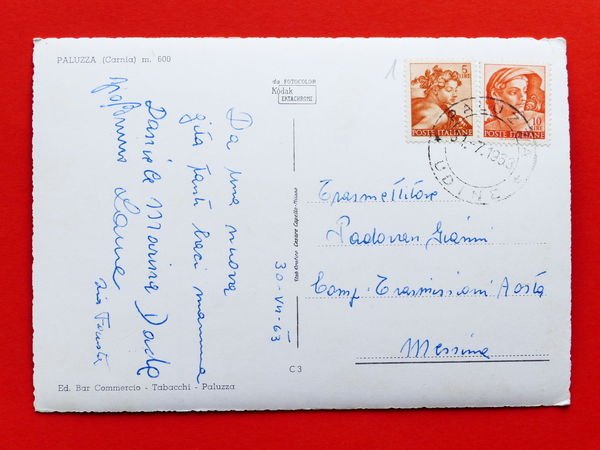 PALUZZA (Carnia) m. 600
da FOTOCOLOR
Kodak
EKTACHROME
Da una nuova
gita tanti baci mamma
Daniele Marina Dado
Laura
zia Fausta
30-VII-63
C 3
Ed. Bar Commercio - Tabacchi - Paluzza
1
5
LIRE
POSTE ITALIANE
10
LIRE
POSTE ITALIANE
31.-7.1963
UDINE
Trasmettitore
Padovan Gianni
Comp. Trasmissioni Aosta
Messina